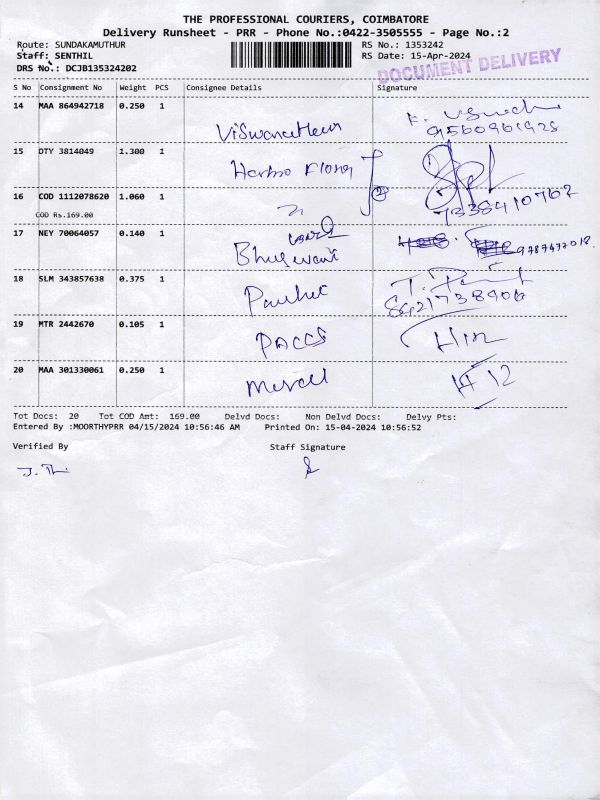 THE PROFESSIONAL COURIERS, COIMBATORE
Delivery Runsheet - PRR - Phone No.:0422-3505555 - Page No.:2
Route: SUNDAKAMUTHUR RS No.: 1353242
Staff: SENTHIL RS Date: 15-Apr-2024
DRS No.: DCJB135324202
DOCUMENT DELIVERY
S No Consignment No Weight PCS Consignee Details Signature
14 MAA 864942718 0.250 1
Viswanathan
15 DTY 3814049 1.300 1
16 COD 1112078620 1.060 1
COD Rs.169.00
7338410762
17 NEY 70064057 0.140 1
9787477018.
18 SLM 343857638 0.375 1
19 MTR 2442670 0.105 1
PACCS
20 MAA 301330061 0.250 1
Tot Docs: 20 Tot COD Amt: 169.00 Delvd Docs: Non Delvd Docs: Delvy Pts:
Entered By :MOORTHYPRR 04/15/2024 10:56:46 AM Printed On: 15-04-2024 10:56:52
Verified By Staff Signature